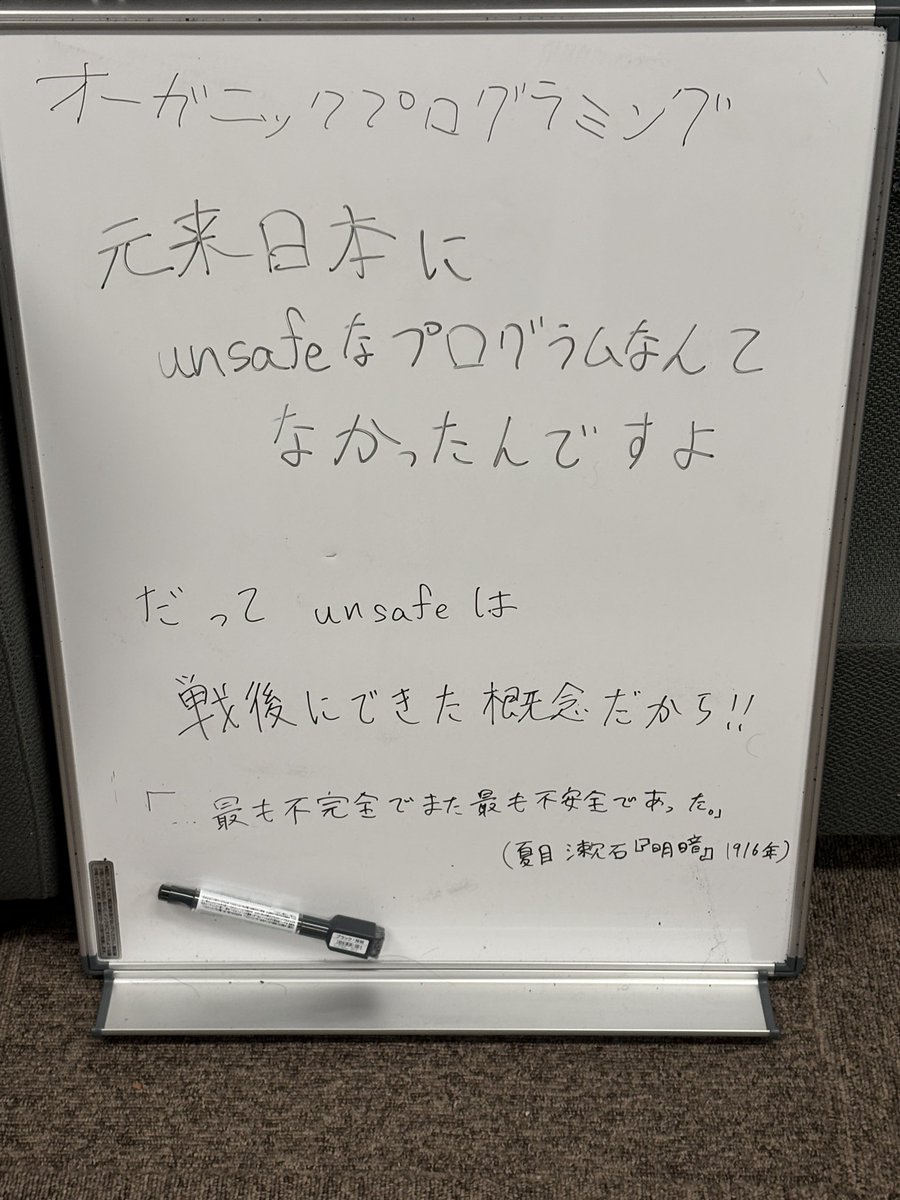 オーガニックプログラミング
元来日本に
unsafeなプログラムなんて
なかったんですよ
だって unsafeは
戦後にできた概念だから!!
「…最も不完全でまた最も不安全であった。」
(夏目漱石『明暗』1916年)